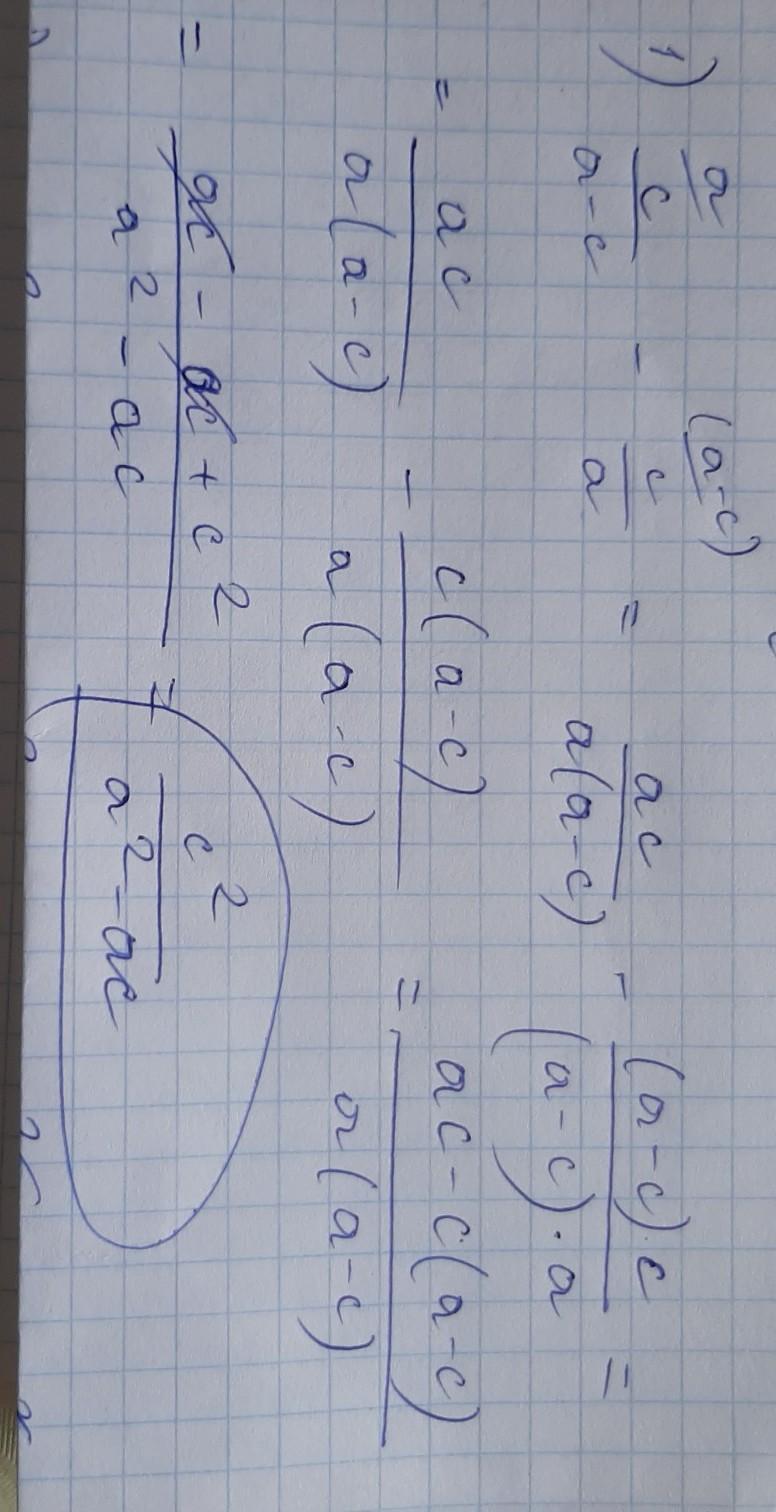 1) a/ c/(a-c) - (a-c)/ c/a = ac/(a(a-c)) - ((a-c)·c)/((a-c)·a) =
= ac/(a(a-c)) - c(a-c)/(a(a-c)) = (ac-c(a-c))/(a(a-c))
= (ac-ac+c²)/(a²-ac) = c²/(a²-ac)